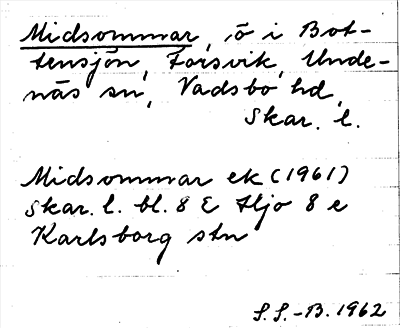 Midsommar, ö i Bot-
tensjön, Forsvik, Unde-
näs sn, Vadsbo hd,
Skar. l.
Midsommar ek (1961)
Skar. l. bl. 8 E Hjo 8 e
Karlsborg stn
S.S.-B. 1962